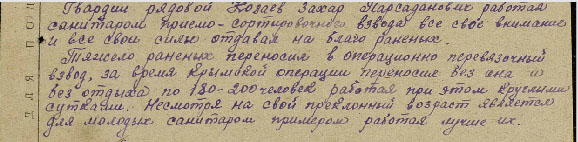 Гвардии рядовой Козаев Захар Парсаданович работая
санитаром приемо-сортировочного взвода все свое внимание
и все свои силы отдавал на благо раненых.
Тяжело раненых переносил в операционно перевязочный
взвод, за время Крымской операции переносил без сна и
без отдыха по 180-200 человек работая при этом круглыми
сутками. Несмотря на свой преклонный возраст является
для молодых санитаром примером работая лучше их.
для по